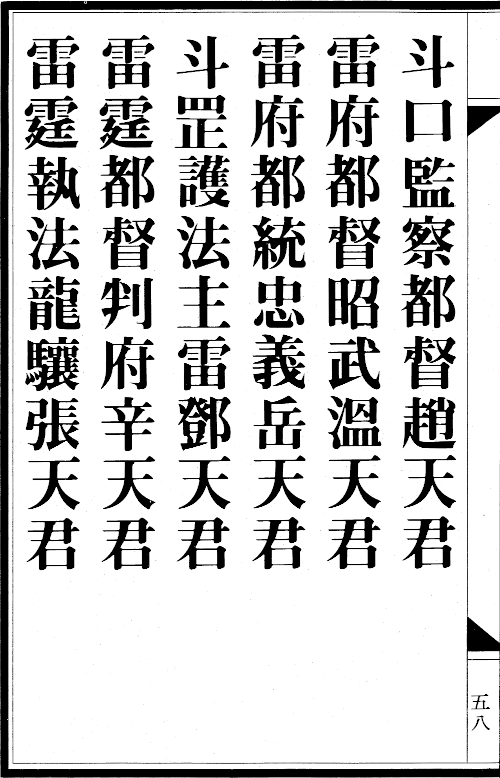 斗口監察都督趙天君
雷府都督昭武溫天君
雷府都統忠義岳天君
斗罡護法主雷鄧天君
雷霆都督判府辛天君
雷霆執法龍驤張天君
五八